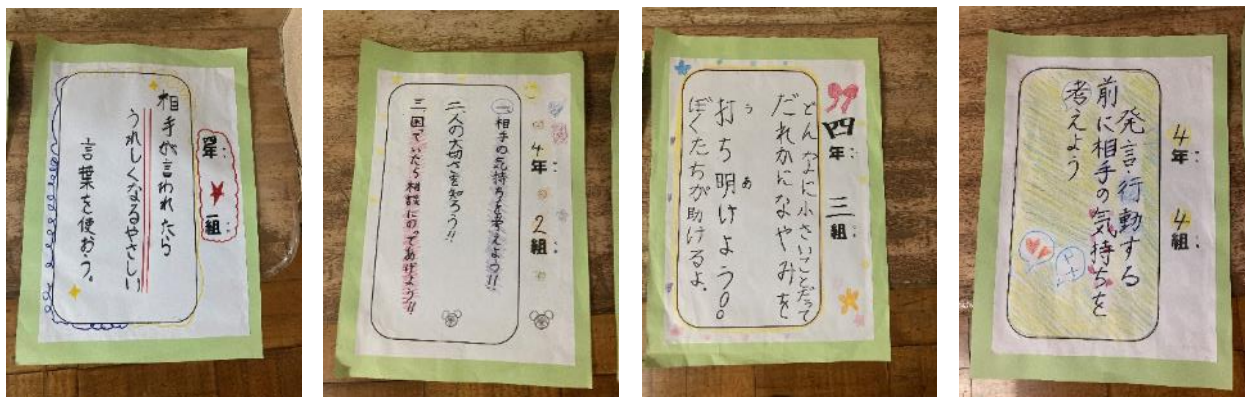 四年 一組
相手が言われたら
うれしくなるやさしい
言葉を使おう。
4年 2組
一相手の気持ちを考えよう!!
二人の大切さを知ろう!!
三困っていたら相談にのってあげよう!!
四年 三組
どんなに小さいことだって
だれかになやみを
打ち明けよう。
う あ
ぼくたちが助けるよ。
4年 4組
発言・行動する
前に相手の気持ちを
考えよう